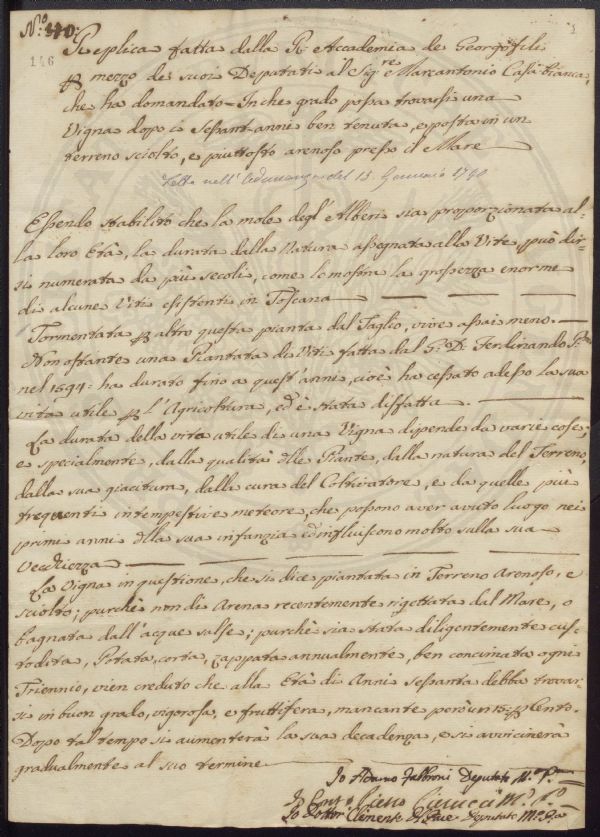 N.º 110:
146
Replica fatta dalla R. Accademia de Georgofili
p mezzo de suoi Deputati al Sigre Marcantonio Casabianca,
che ha domandato = In che grado possa trovarsi una
Vigna dopo i sessant'anni ben tenuta, e posta in un
terreno sciolto, e piuttosto arenoso presso il Mare
Letta nell'Adunanza del 13. Gennaio 1790
Essendo stabilito che la mole degl'Alberi sia proporzionata al-
la loro Età, la durata dalla Natura assegnata alla Vite può dir-
si numerata da più secoli, come lo mostra la grossezza enorme
di alcune Viti esistenti in Toscana
Tormentata p altro questa pianta dal Taglio, vive assai meno.
Non ostante una Piantata di Viti fatta dal G. D. Ferdinando Pmo
nel 1594: ha durato fino a quest'anni, cioè ha cessato adesso la sua
vita utile p l'Agricoltura, ed è stata disfatta.
La durata della vita utile di una Vigna dipende da varie cose;
e specialmente, dalla qualità dlle Piante, dalla natura del Terreno,
dalla sua giacitura, dalla cura del Coltivatore, e da quelle più
frequenti intempestive meteore, che possono aver avuto luogo nei
primi anni dlla sua infanzia ed influiscono molto sulla sua
Vecchiezza
La Vigna in questione, che si dice piantata in Terreno Arenoso, e
sciolto; purchè non di Arena recentemente rigettata dal Mare, o
bagnata dall'acque salse; purchè sia stata diligentemente cus-
todita, Potata corta, zappata annualmente, ben concimata ogni
Triennio, vien creduto che alla Età di Anni sessanta debba trovar-
si in buon grado, vigorosa, e fruttifera, mancante però un 15: p Cento.
Dopo tal tempo si aumenterà la sua decadenza, e si avvicinerà
gradualmente al suo termine
Io Adamo Fabbroni Deputato Mo Pa
Io Mo Po
Io Dottor Clemente Deputato Mo Pa